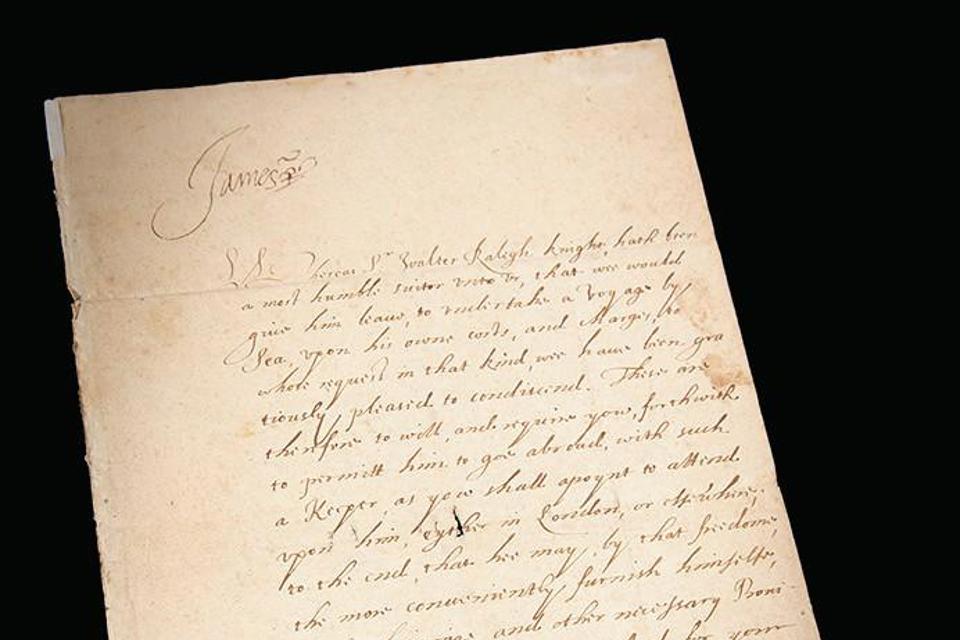 James R
Whereas Sr Walter Ralegh knight, hath been
a most humble suitor unto us, that wee would
give him leave, to undertake a Voyage by
Sea, upon his owne costs, and Charges, to
whose request in that kind, wee have been gra
tiously pleased to condiscend. These are
therefore to will, and require yow, forthwith
to permitt him to goe abroad, with such
a Keeper, as yow shall apoynt to attend
upon him, eyther in London, or elsewhere,
to the end, that hee may, by that freedome,
the more conveniently furnish himselfe,
and other necessary Provi-
for your